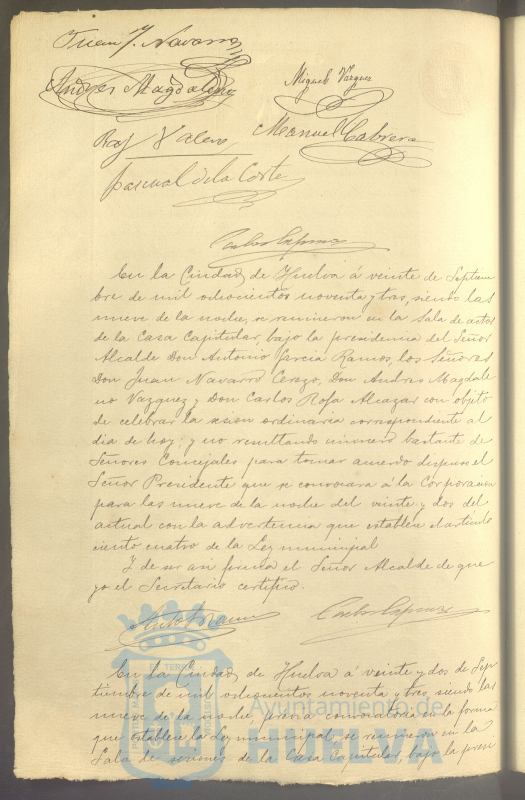 Juan J. Navarro
Andres Magdaleno
Miguel Vazquez
Raf Valero
Manuel Cabrera
Pascual de la Corte
Carlos Espinosa
En la Ciudad de Huelva á veinte de Septiem
bre de mil ochocientos noventa y tres, siendo las
nueve de la noche, se reunieron en la Sala de actos
de la Casa Capitular, bajo la presidencia del Señor
Alcalde Don Antonio Garcia Ramos, los Señores
Don Juan Navarro Cerezo, Don Andres Magdale
no Vazquez y Don Carlos Rofa Alcazar con objeto
de celebrar la sesion ordinaria correspondiente al
dia de hoy; y no resultando número bastante de
Señores Concejales para tomar acuerdo dispuso el
Señor Presidente que se convocara á la Corporacion
para las nueve de la noche del veinte y dos del
actual con la advertencia que establece el articulo
ciento cuatro de la Ley municipal
Y de ser asi firma el Señor Alcalde de que
yo el Secretario certifico.
Carlos Espinosa
En la Ciudad de Huelva á veinte y dos de Sep
tiembre de mil ochocientos noventa y tres, siendo las
nueve de la noche, previa convocatoria en la forma
que establece la Ley municipal, se reunieron en la
Sala de sesiones de la Casa Capitular, bajo la presi
Ayuntamiento de
HUELVA